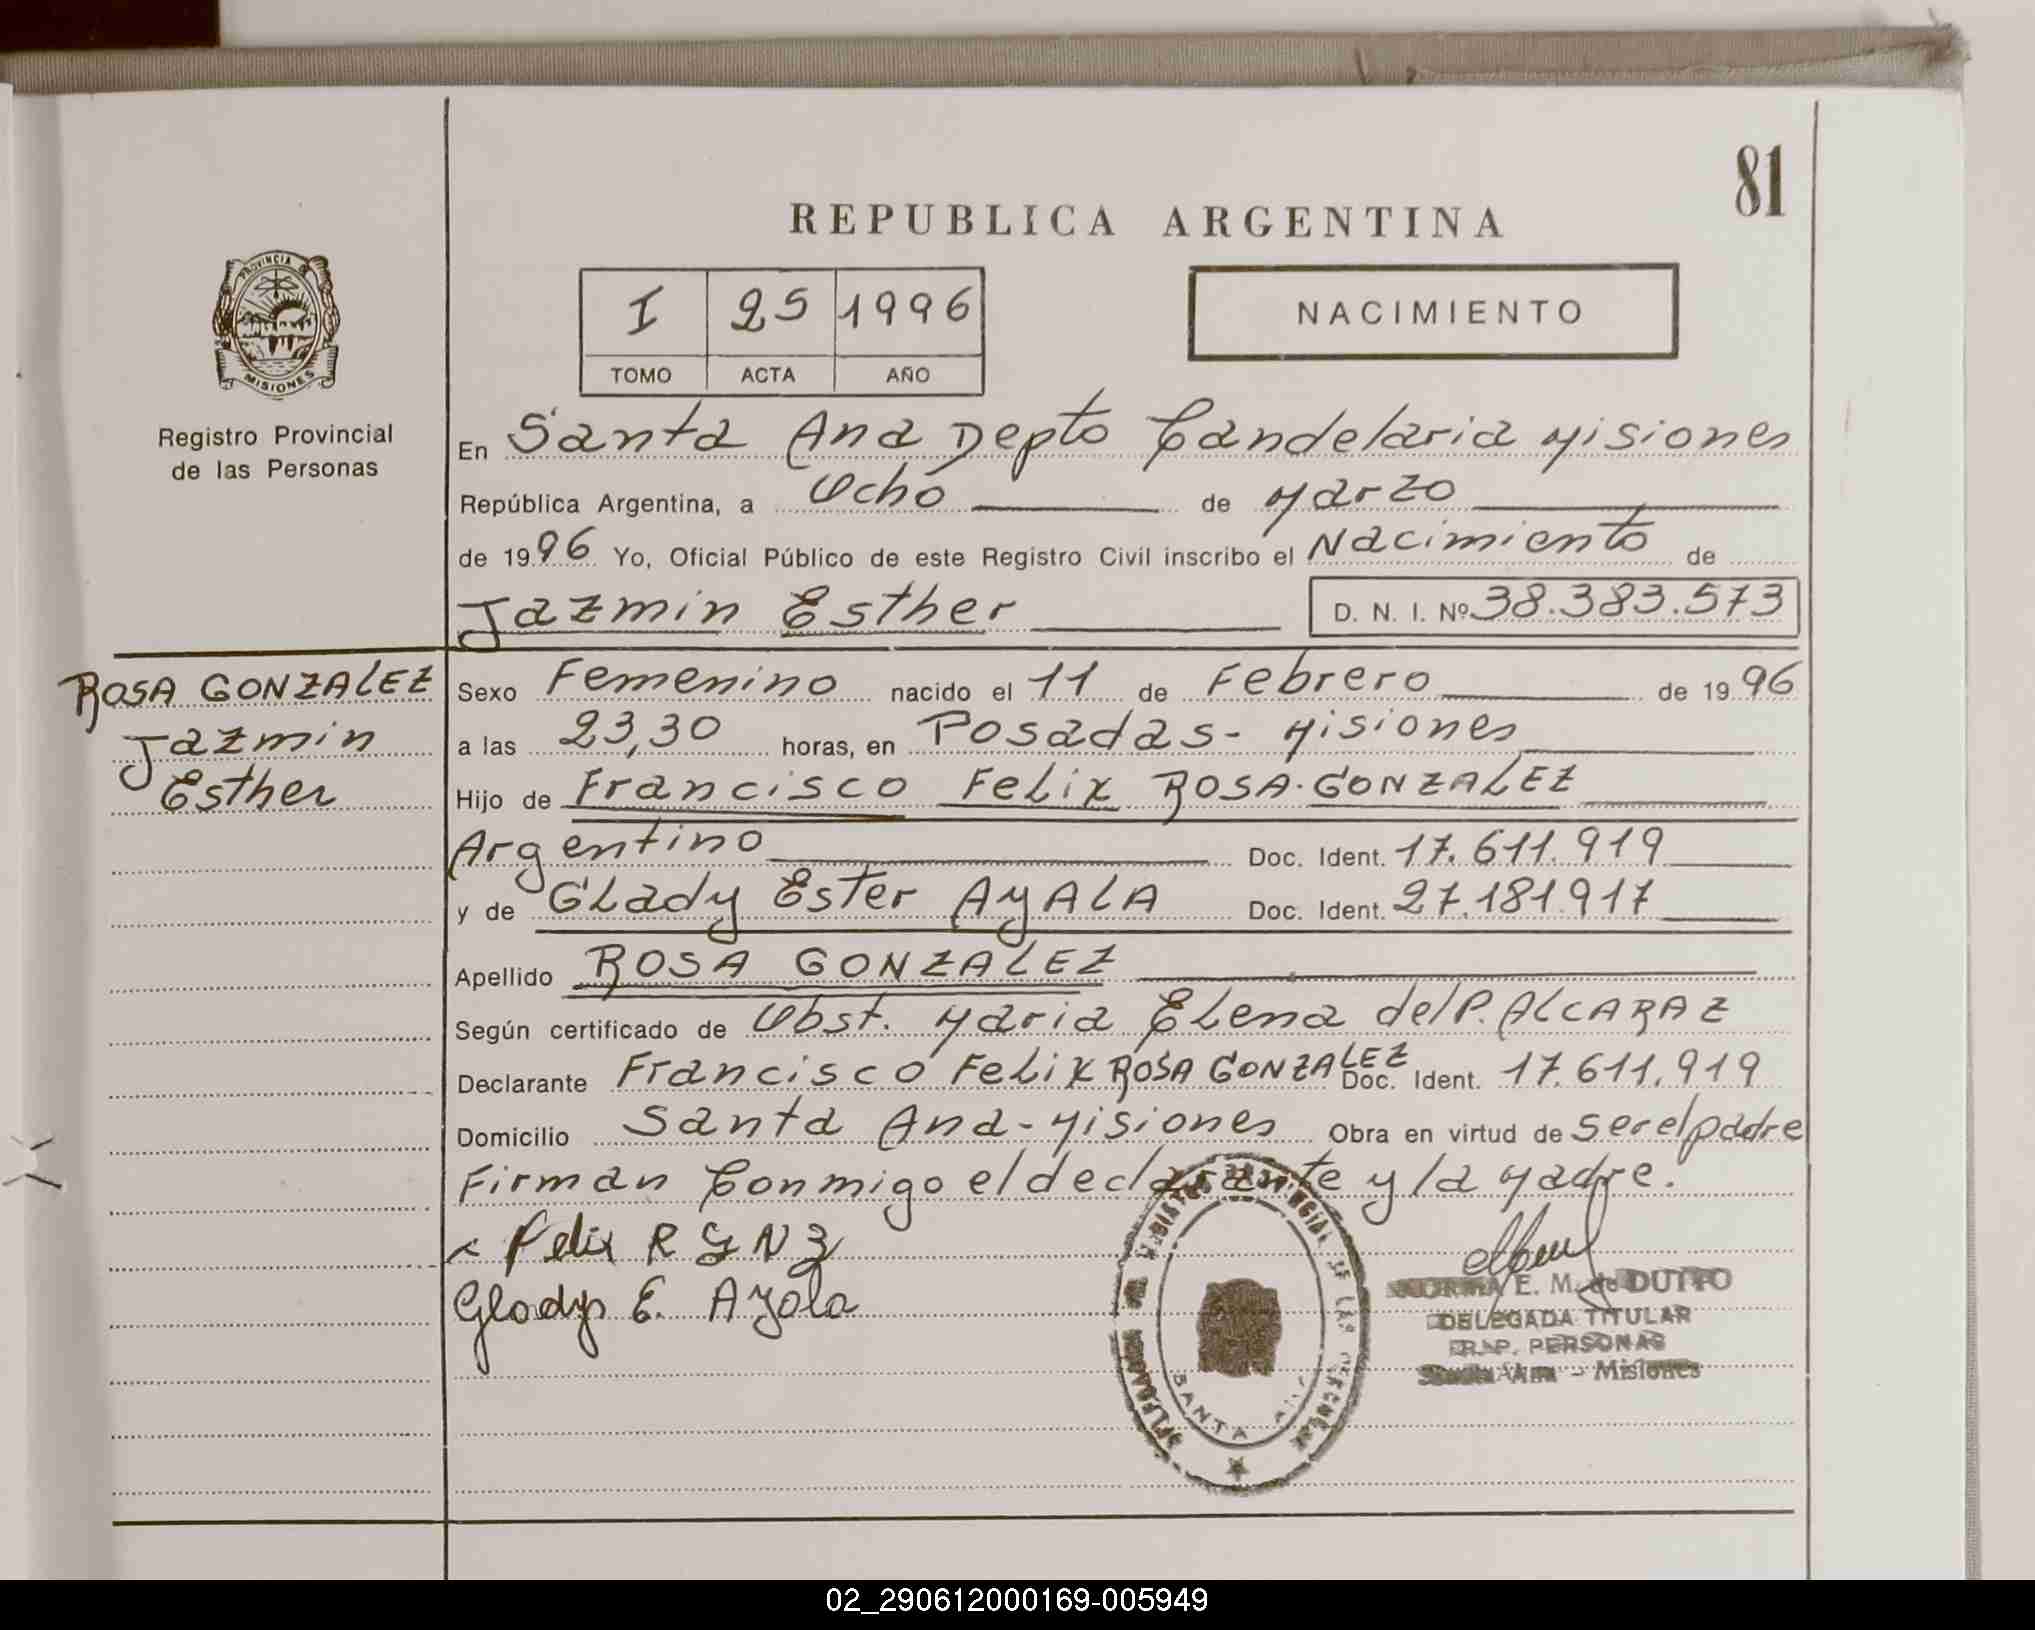 81
REPUBLICA ARGENTINA
I 25 1996
TOMO ACTA AÑO
NACIMIENTO
PROVINCIA DE
MISIONES
Registro Provincial
de las Personas
En Santa Ana Depto Candelaria Misiones
República Argentina, a Ocho de Marzo
de 1996 Yo, Oficial Público de este Registro Civil inscribo el Nacimiento de
Jazmin Esther D. N. I. Nº 38.383.573
ROSA GONZALEZ
Jazmin
Esther
Sexo Femenino nacido el 11 de Febrero de 1996
a las 23,30 horas, en Posadas - Misiones
Hijo de Francisco Felix ROSA GONZALEZ
Argentino Doc. Ident. 17.611.919
y de Glady Ester AyALA Doc. Ident. 27.181.917
Apellido ROSA GONZALEZ
Según certificado de Obst. Maria Elena del P. ALCARAZ
Declarante Francisco Felix ROSA GONZALEZ Doc. Ident. 17.611.919
Domicilio Santa Ana - Misiones Obra en virtud de ser el padre
Firman Conmigo el declarante y la Madre.
x Felix R G N Z
Gladys E. Ayala
NORMA E. M. de DUTTO
DELEGADA TITULAR
R.P. PERSONAS
Santa Ana - Misiones
SANTA ANA
02_290612000169-005949